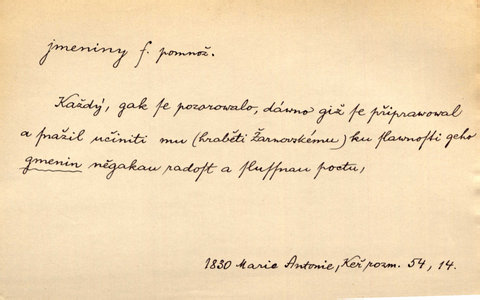 jmeniny f. pomnož.
Každý, gak se pozorowalo, dáwno giž se připrawowal
a snažil učiniti mu (hraběti Žarnovskému) ku slawnosti geho
gmenin něgakau radost a slussnau poctu,
1830 Marie Antonie, Keř rozm. 54, 14.